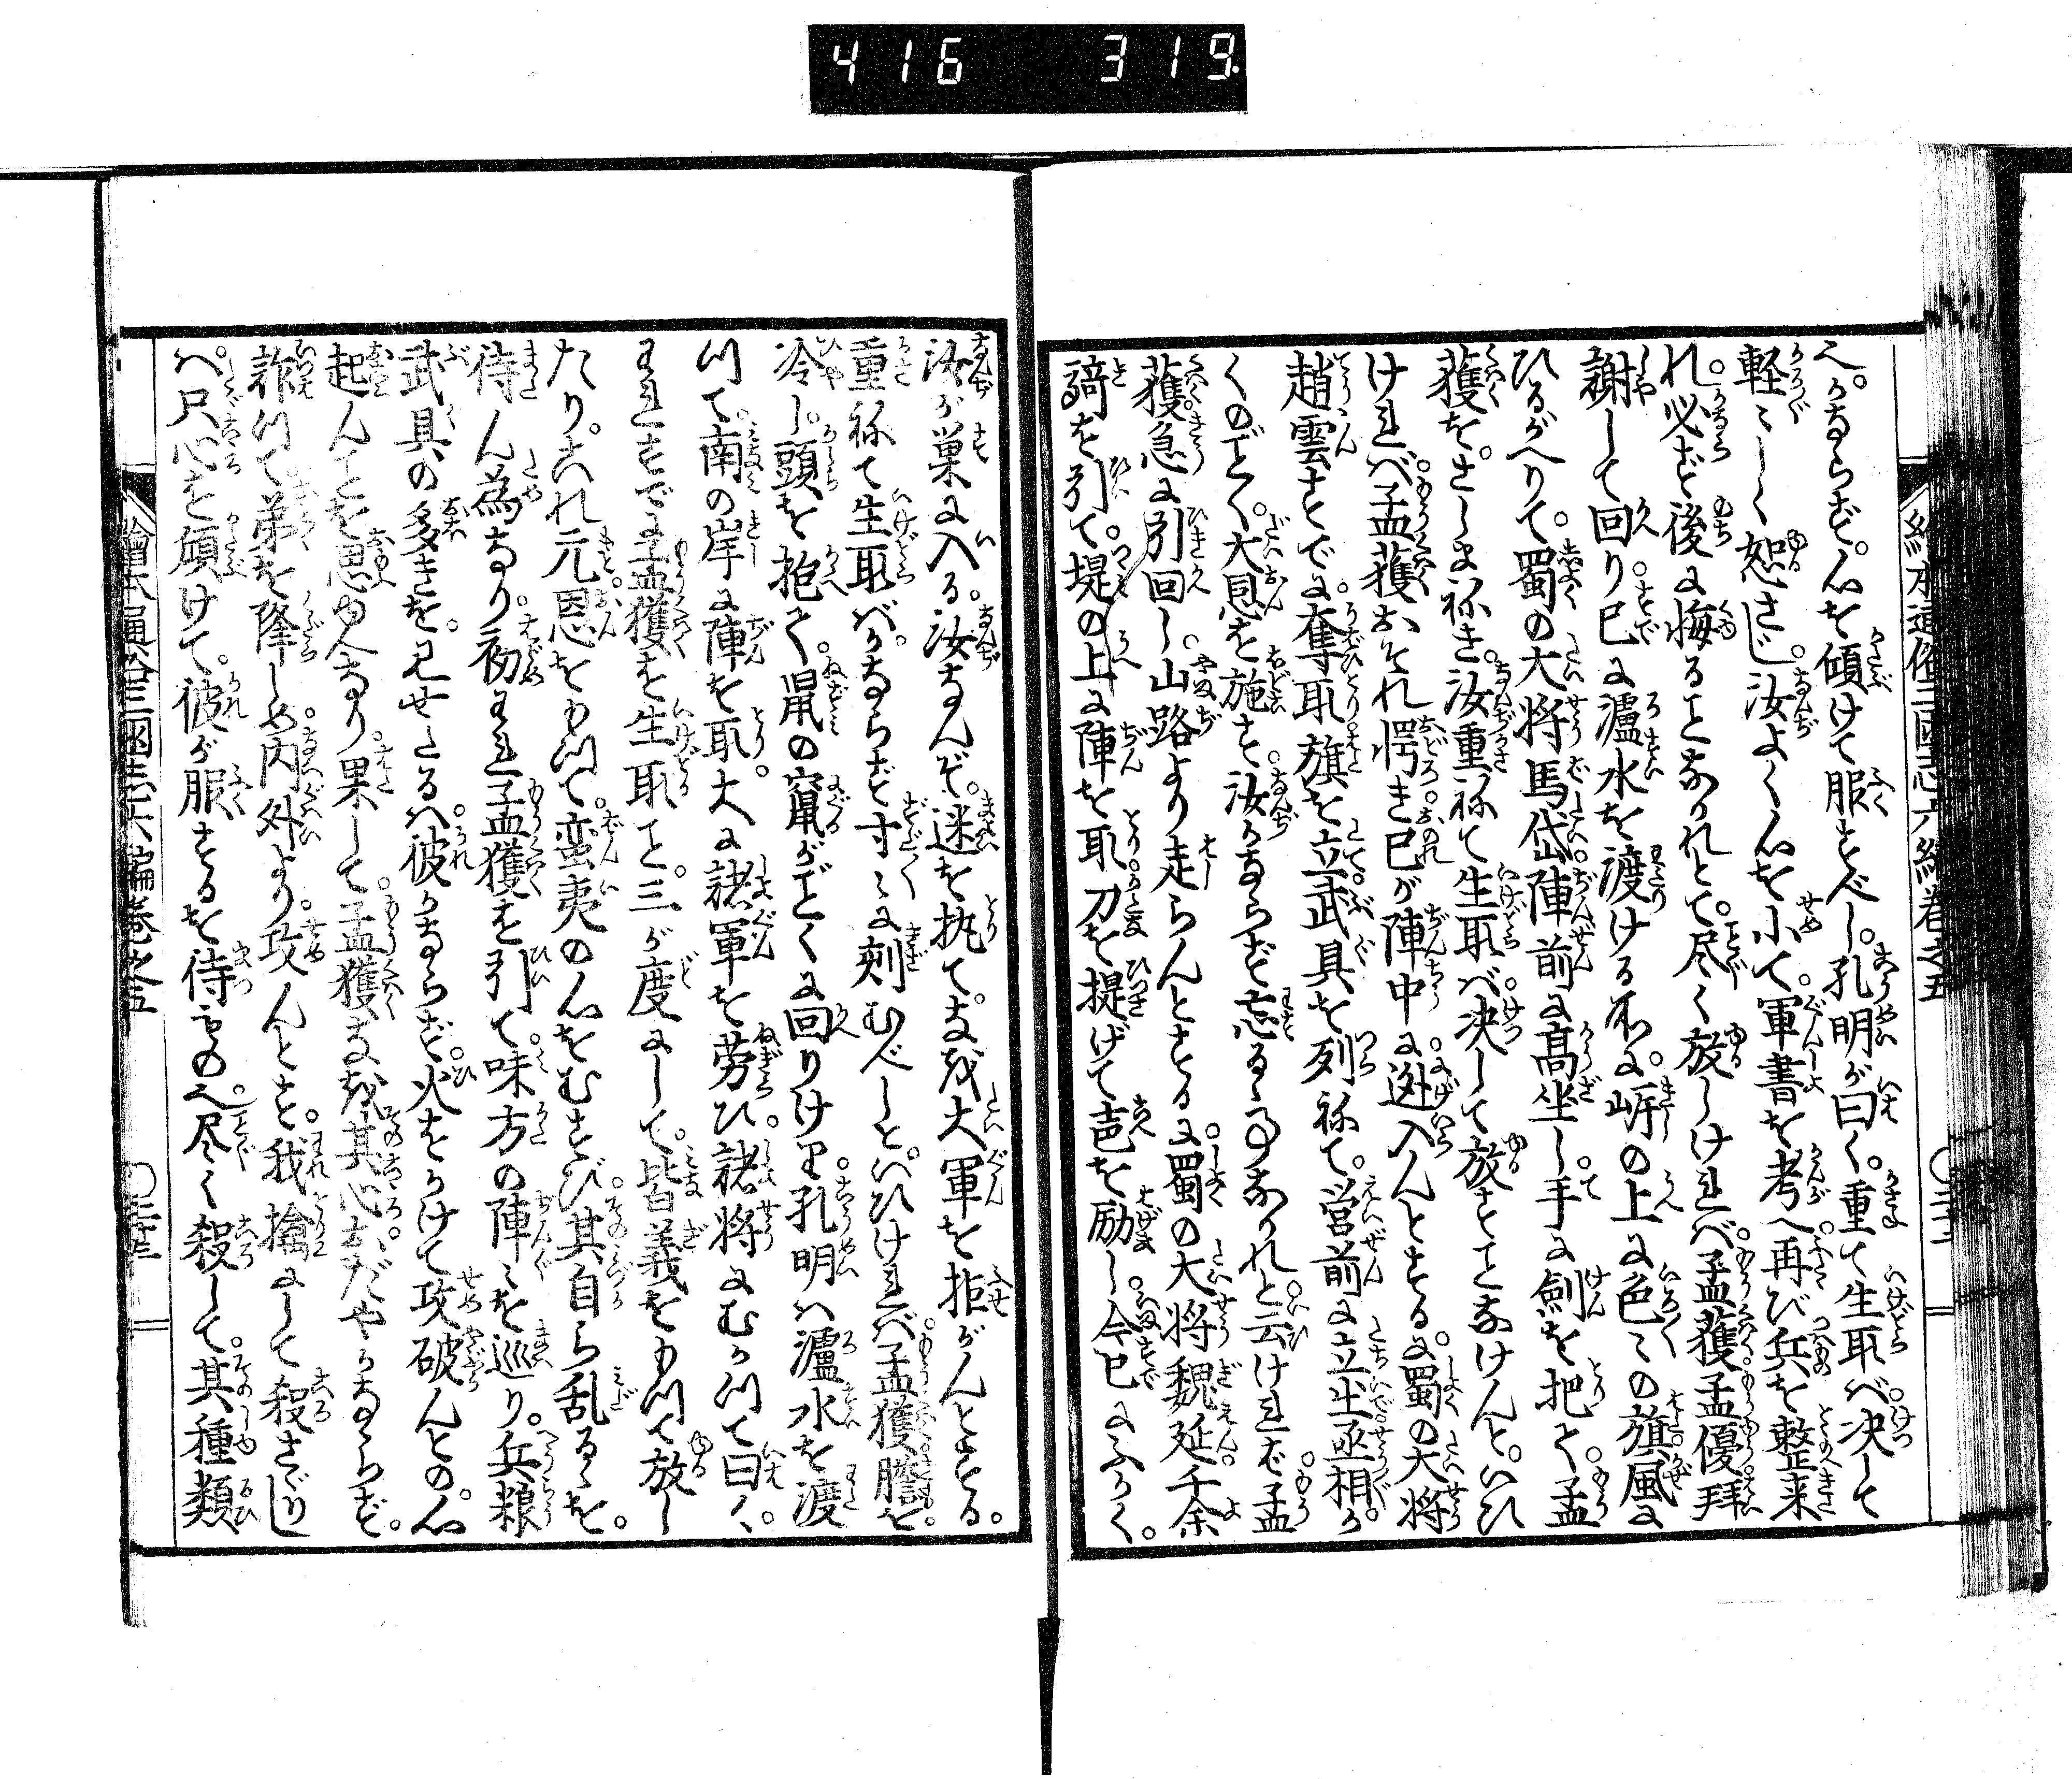 416 319
へ。かならず。心を傾けて服すべし。孔明が曰く。重て生取ば決して
軽〻しく恕さじ。汝よく〱心を小て。軍書を考へ再び兵を整来
れ。必ず後に悔ることなかれとて。尽く放しければ。孟獲孟優拜
謝して回り。已に瀘水を渡けるに。岍の上に色〻の旗風に
ひるがへりて。蜀の大将馬岱陣前に高坐し。手に劍を把て。孟
獲を。さしまねき。汝重ねて生取ば。決して放すことなけんと。いひ
ければ。孟獲おそれ愕き。已が陣中に迯入んとするに。蜀の大将
趙雲すでに。奪取旗を立。武具を列ねて。営前に立出丞相か
くのごとく。大恩を施す。汝かならず忘るゝ事なかれと。云ければ。孟
獲急に引回し。山路より走らんとするに。蜀の大将魏延千余
騎を引て。堤の上に陣を取。刀を提げて声を励し。今已にふかく。
汝が巣に入る。汝なんぞ。迷を执て。なを大軍を拒がんとする。
重ねて生取ば。かならず寸〻に剉むべしと。いひければ孟獲膽を
冷し。頭を抱て。鼠の竄がごとくに回りけり。孔明は瀘水を渡
つて。南の岸に陣を取。大に諸軍を労ひ。諸将にむかつて曰く。
われすでに孟獲を生取こと。三が度にして。皆義をもつて放し
たり。これ元恩をもつて。蛮夷の心をむすび。其自ら乱るゝを。
待ん為なり。初われ孟獲を引て。味方の陣〻を巡り。兵粮
武具の多きを。見せたるは。彼かならず。火をかけて攻破んとの。心
起んことを思ゆへなり。果して。孟獲なを其心おだやかならず。
詐つて弟を降しめ。内外より。攻んとす。我擒にして殺さゞり
ば。只心を傾けて。彼が服するを待もの也。尽く殺して。其種類
繪本通俗三國志六編卷之五